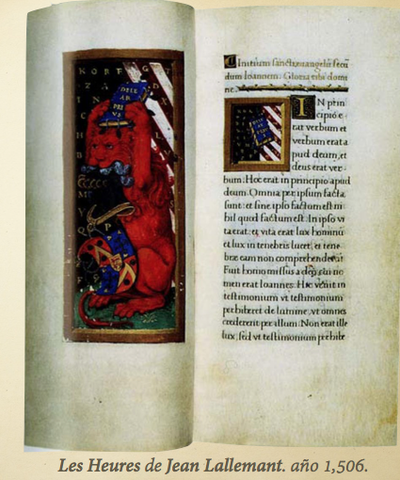 Initium sancti evangelii secu
dum Ioannem: Gloria tibi domi
ne.
IN prin
cipio e
rat verbum et
verbum erat a
pud deum, et
deus erat ver-
bum: Hoc erat in principio apud
deum. Omnia per ipsum facta
sunt: et sine ipso factum est ni-
hil quod factum est. In ipso vi
ta erat: et vita erat lux hominū
et lux in tenebris lucet, et tene-
bræ eam non comprehenderūt
Fuit homo missus a deo, cui no
men erat Ioannes. Hic venit in
testimonium vt testimonium
perhiberet de lumine, vt omnes
crederent per illum: Non erat ille
lux, sed vt testimonium perhibe
Les Heures de Jean Lallemant. año 1,506.